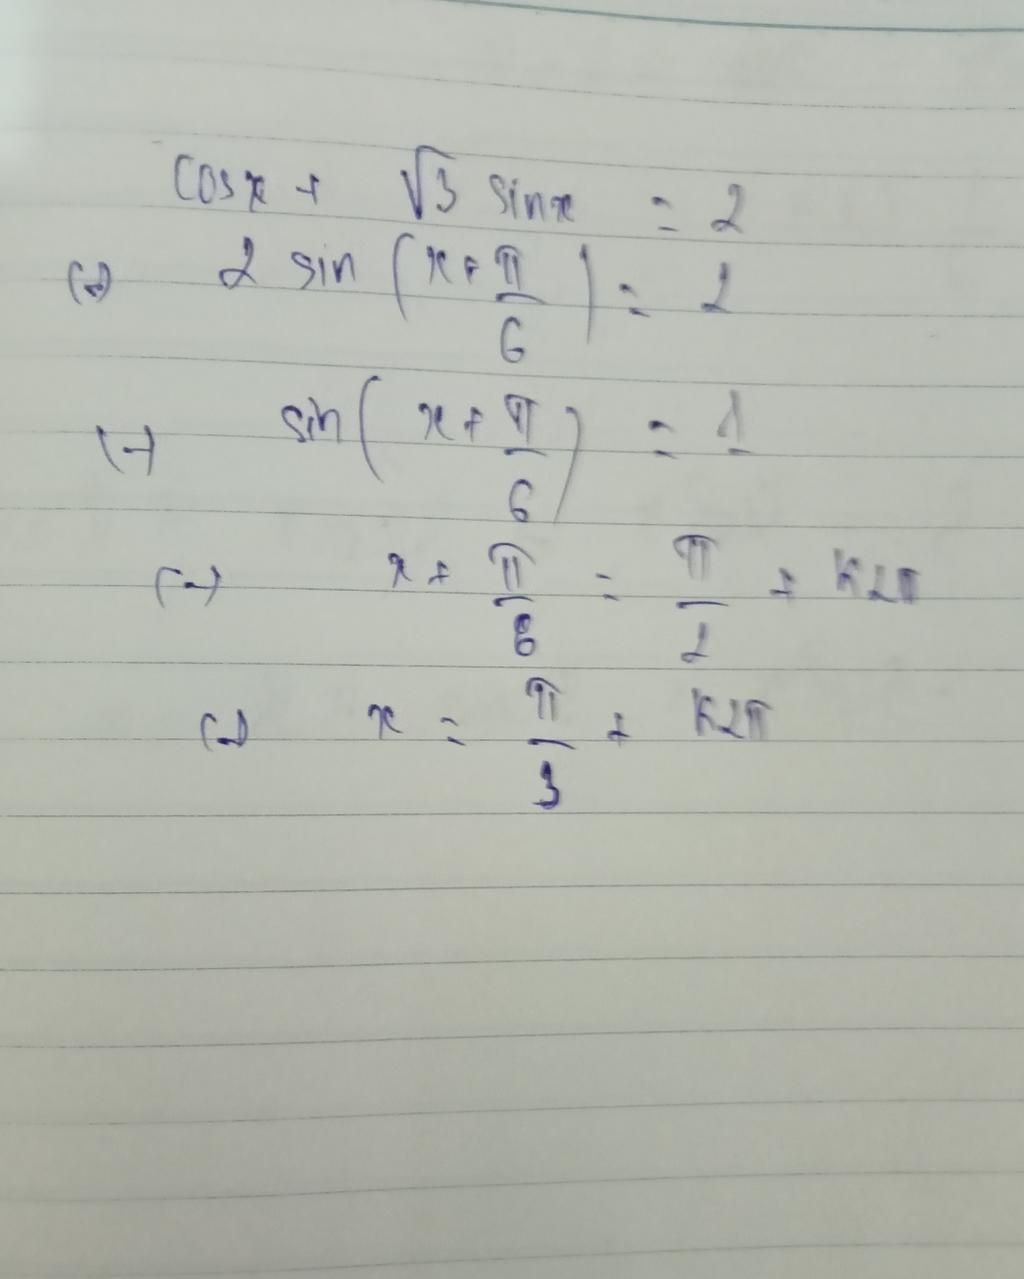 cosx + √3 sinx = 2
(=) 2 sin (x + π/6) = 2
(=) sin (x + π/6) = 1
(=) x + π/6 = π/2 + k2π
(=) x = π/3 + k2π